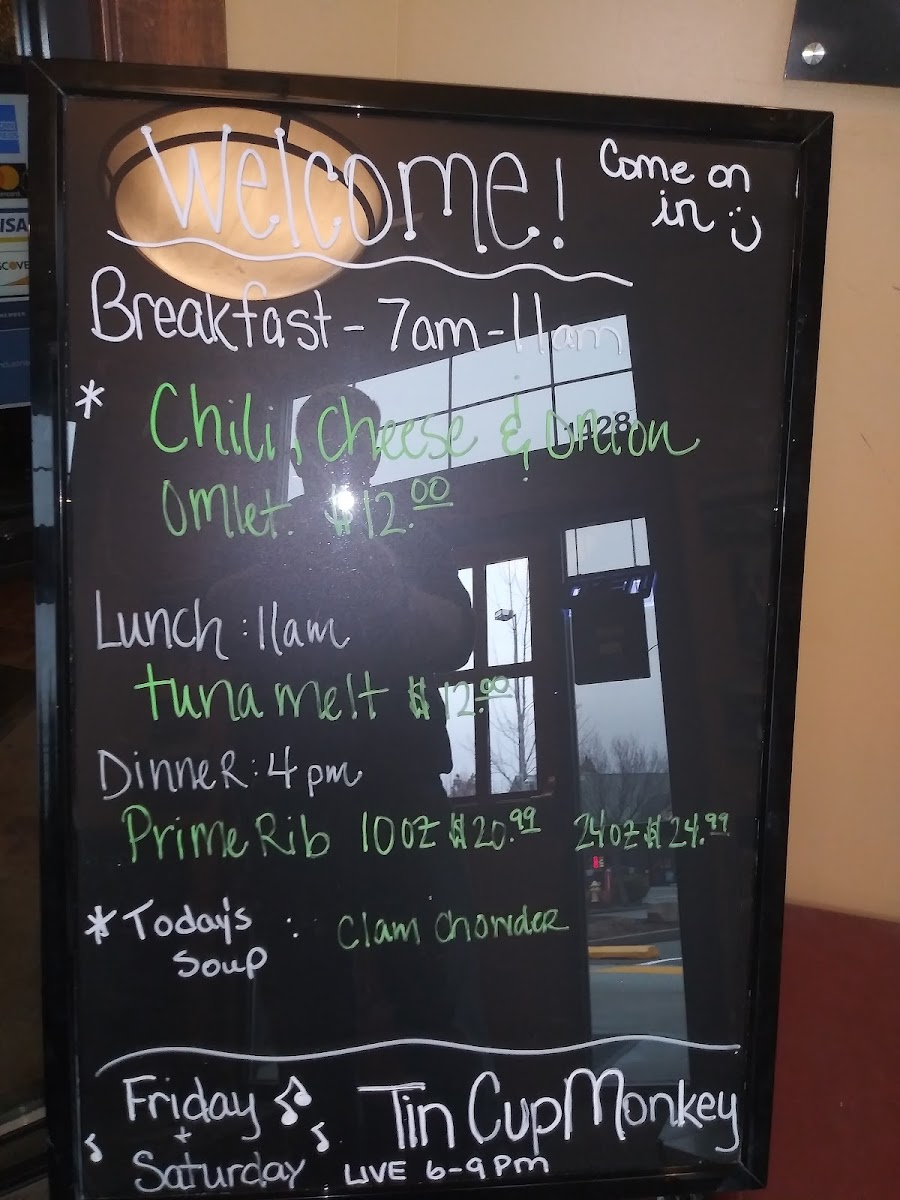 Welcome! Come on
in :)
Breakfast - 7am-11am
* Chili, Cheese & Onion
Omlet. $12.00
Lunch: 11am
tuna melt $12.00
Dinner: 4pm
Prime Rib 10oz $20.99 24oz $24.99
* Today's : Clam Chowder
Soup
Friday Tin Cup Monkey
+
Saturday LIVE 6-9pm
VISA
428